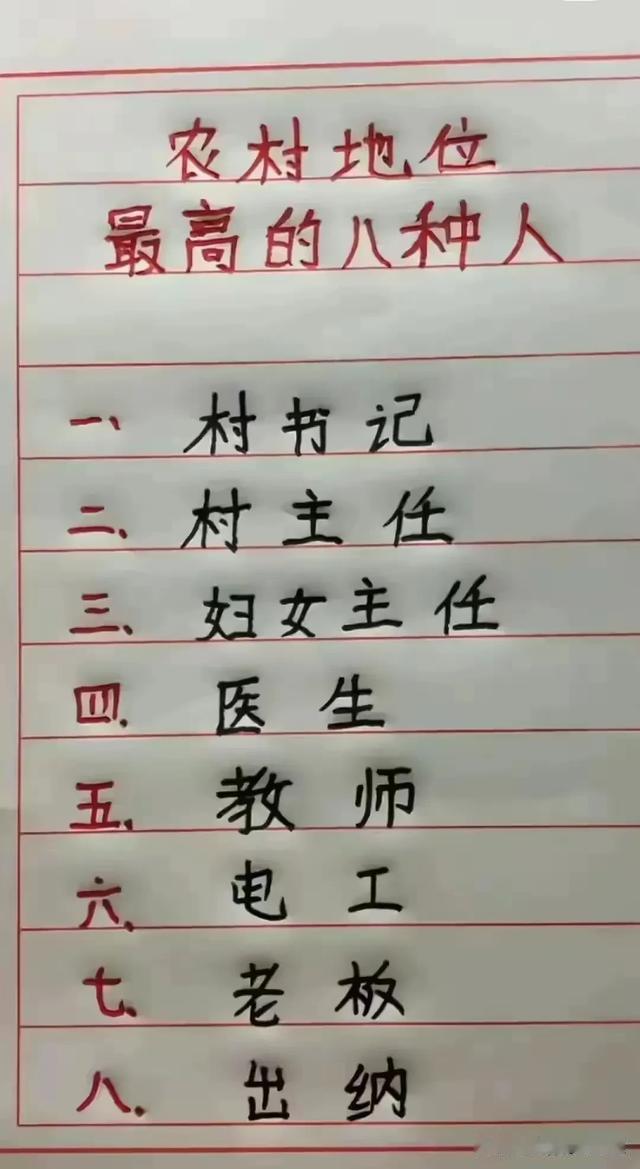 农村地位
最高的八种人
一、村书记
二、村主任
三、妇女主任
四、医生
五、教师
六、电工
七、老板
八、出纳